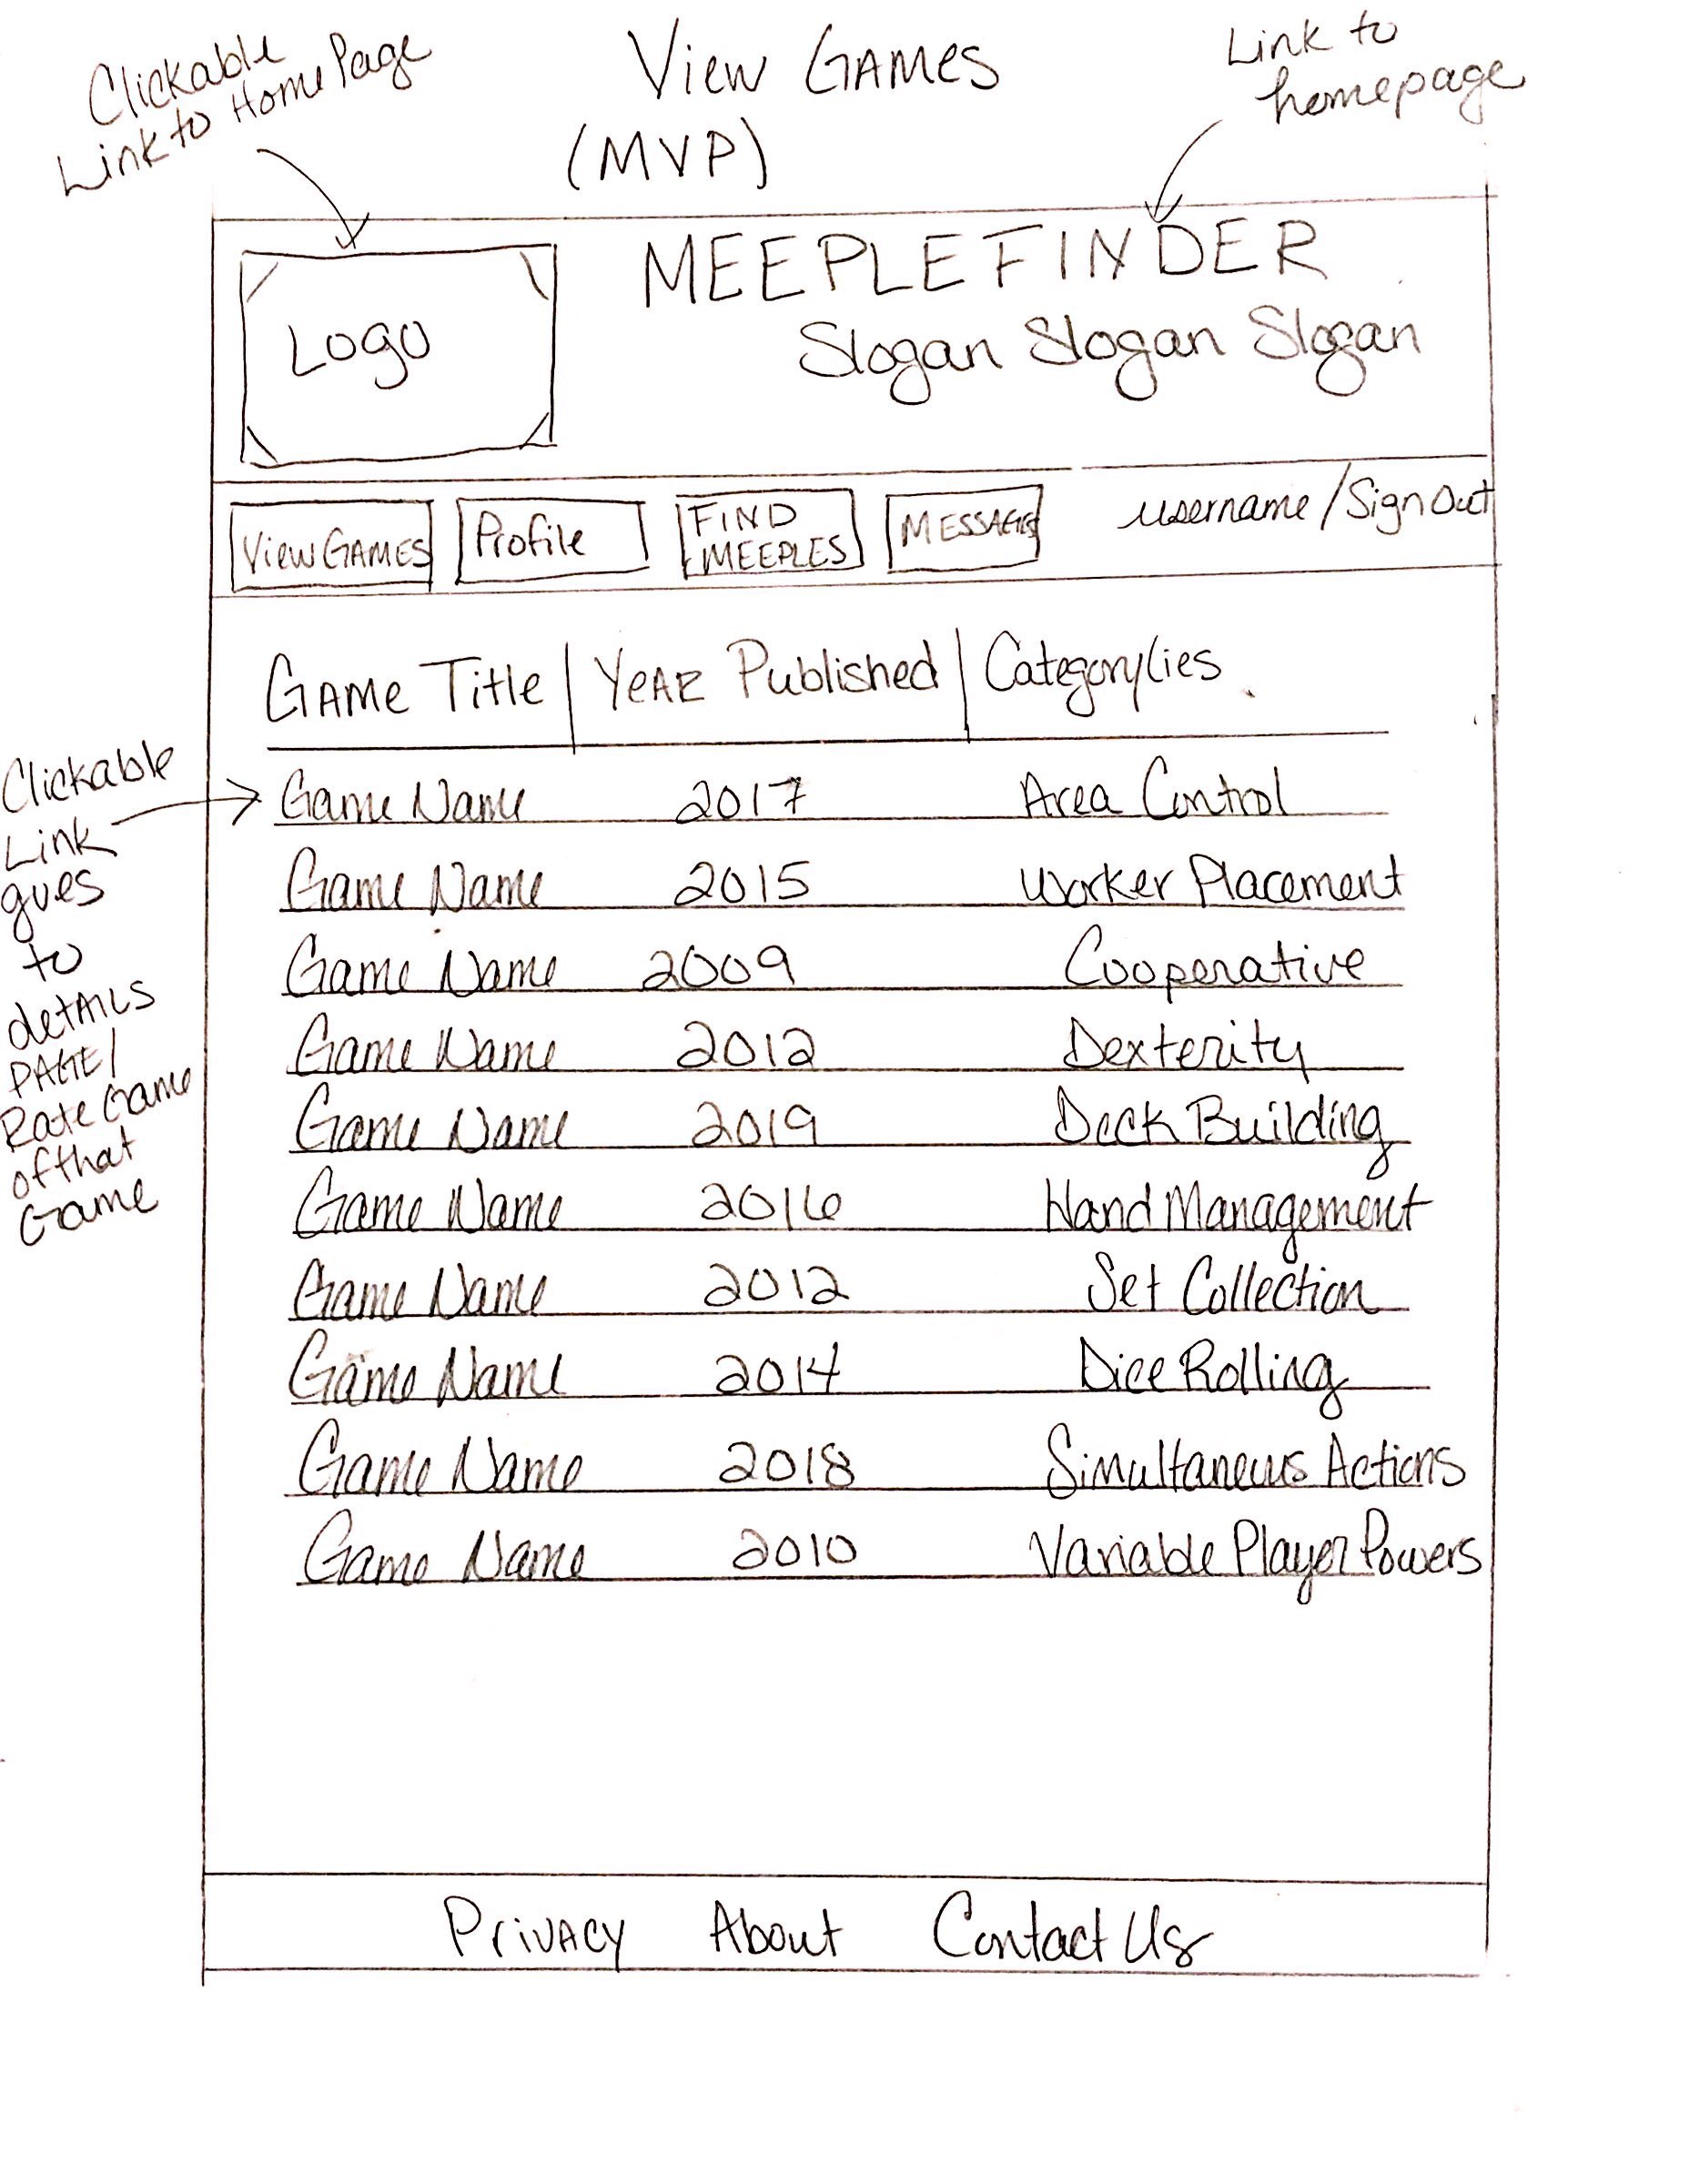 Clickable
Link to Home Page
View Games
(MVP)
Link to
homepage
Logo
MEEPLEFINDER
Slogan Slogan Slogan
View Games
Profile
FIND
MEEPLES
MESSAGES
username/Sign Out
Game Title | Year Published | Category/ies
Clickable
Link
goes
to
details
PAGE/
Rate Game
of that
Game
Game Name 2017 Area Control
Game Name 2015 Worker Placement
Game Name 2009 Cooperative
Game Name 2012 Dexterity
Game Name 2019 Deck Building
Game Name 2016 Hand Management
Game Name 2012 Set Collection
Game Name 2014 Dice Rolling
Game Name 2018 Simultaneous Actions
Game Name 2010 Variable Player Powers
Privacy About Contact Us